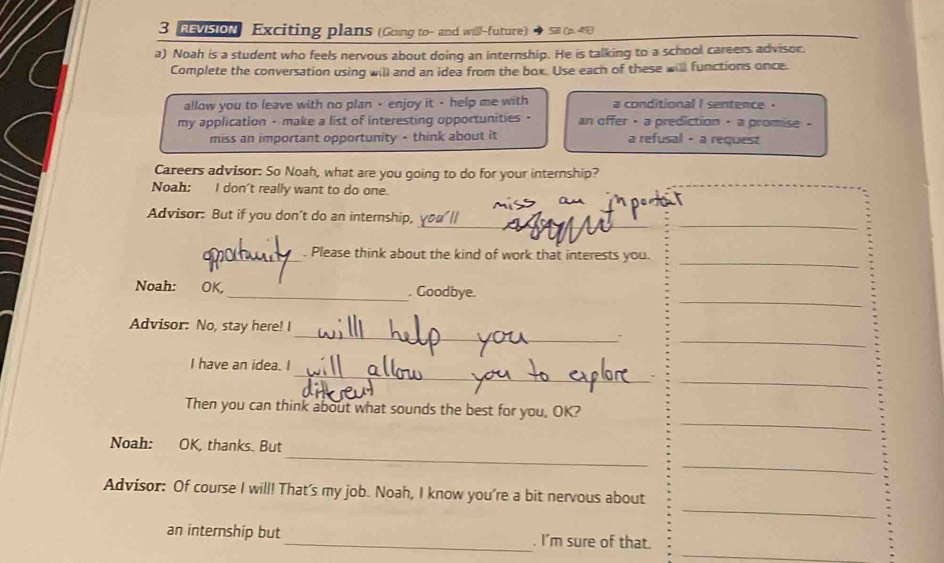 3 REVISION Exciting plans (Going to- and will-future) → S8 (p. 49)
a) Noah is a student who feels nervous about doing an internship. He is talking to a school careers advisor.
Complete the conversation using will and an idea from the box. Use each of these will functions once.
allow you to leave with no plan - enjoy it - help me with
my application - make a list of interesting opportunities -
miss an important opportunity - think about it
a conditional I sentence -
an offer - a prediction - a promise -
a refusal - a request
Careers advisor: So Noah, what are you going to do for your internship?
Noah: I don't really want to do one.
miss an inportat
Advisor: But if you don't do an internship, you'll
opportunity. Please think about the kind of work that interests you.
Noah: OK, . Goodbye.
Advisor: No, stay here! I willl help you.
I have an idea. I will allow you to explore.
different
Then you can think about what sounds the best for you, OK?
Noah: OK, thanks. But
Advisor: Of course I will! That's my job. Noah, I know you're a bit nervous about
an internship but . I'm sure of that.